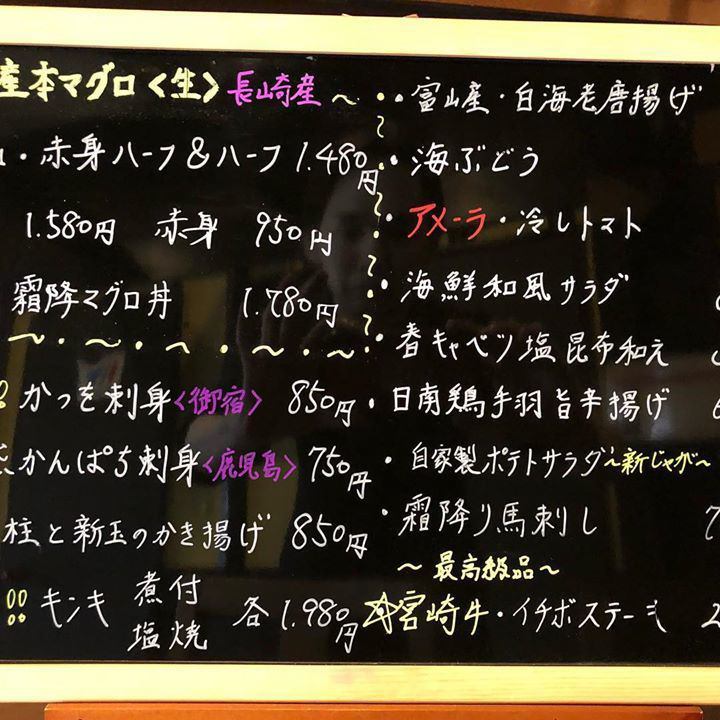 産本マグロ〈生〉長崎産～
・赤身ハーフ&ハーフ 1.480円
1.580円 赤身 950円
霜降マグロ丼 1.780円
～・～・～・～・～
かつを刺身〈御宿〉 850円
かんぱち刺身〈鹿児島〉 750円
柱と新玉のかき揚げ 850円
キンキ 煮付 塩焼 各1.980円
・富山産・白海老唐揚げ
・海ぶどう
・アメーラ・冷しトマト
・海鮮和風サラダ
・春キャベツ塩昆布和え
・日南鶏手羽旨辛揚げ
・自家製ポテトサラダ～新じゃが～
・霜降り馬刺し 7
～最高級品～
☆宮崎牛・イチボステーキ 2